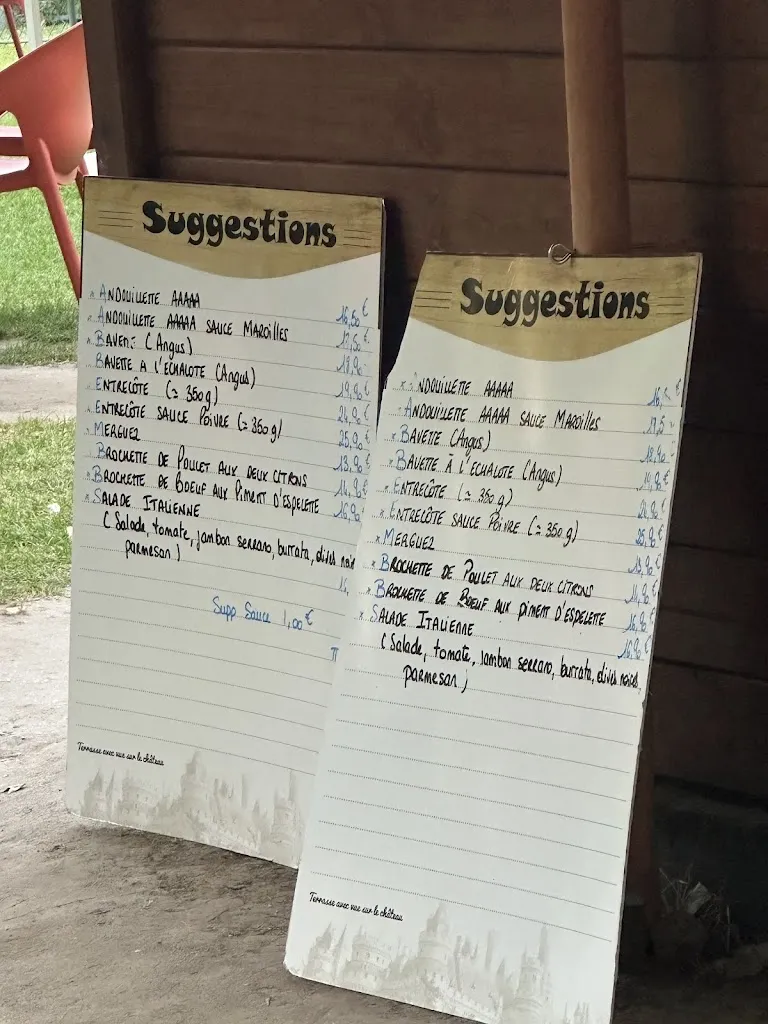 Suggestions
* ANDOUILLETTE AAAAA 16,50 €
* ANDOUILLETTE AAAAA SAUCE MAROILLES 17,50 €
* BAVETTE (Angus) 18,90 €
* BAVETTE A L'ECHALOTE (Angus) 19,90 €
* ENTRECÔTE (≃ 350 g) 24,90 €
* ENTRECÔTE SAUCE POIVRE (≃ 350 g) 25,90 €
* MERGUEZ 13,90 €
* BROCHETTE DE POULET AUX DEUX CITRONS 14,90 €
* BROCHETTE DE BOEUF AUX PIMENT D'ESPELETTE 16,90 €
* SALADE ITALIENNE
( Salade, tomate, jambon serrano, burrata, olives noires
parmesan )
Supp Sauce 1,00 €
Terrasse avec vue sur le château
Suggestions
* ANDOUILLETTE AAAAA 16, €
* ANDOUILLETTE AAAAA SAUCE MAROILLES 17,5
* BAVETTE (Angus) 18,90
* BAVETTE À L'ECHALOTE (Angus) 19,90 €
* ENTRECÔTE (≃ 350 g) 24,90 €
* ENTRECÔTE SAUCE POIVRE (≃ 350 g) 25,90 €
* MERGUEZ 13,90 €
* BROCHETTE DE POULET AUX DEUX CITRONS 14,90 €
* BROCHETTE DE BOEUF AUX PIMENT D'ESPELETTE 16,90 €
* SALADE ITALIENNE 16,90 €
( Salade, tomate, jambon serrano, burrata, olives noires,
parmesan )
Terrasse avec vue sur le château